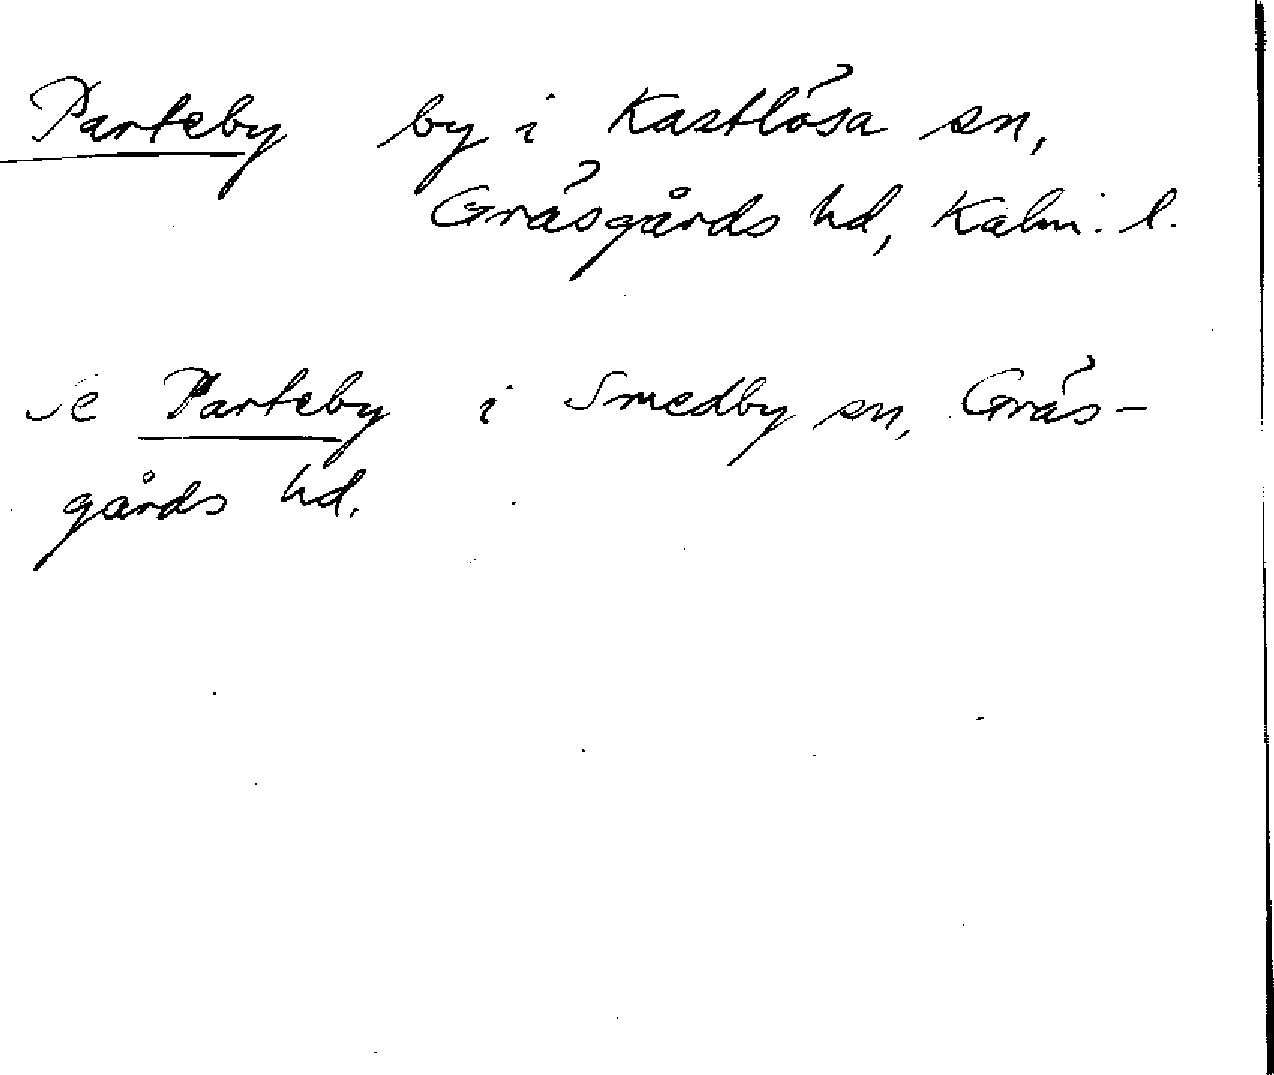 Parteby by i Kastlösa sn,
Gräsgårds hd, Kalm. l.
Se Parteby i Smedby sn, Gräs-
gårds hd.